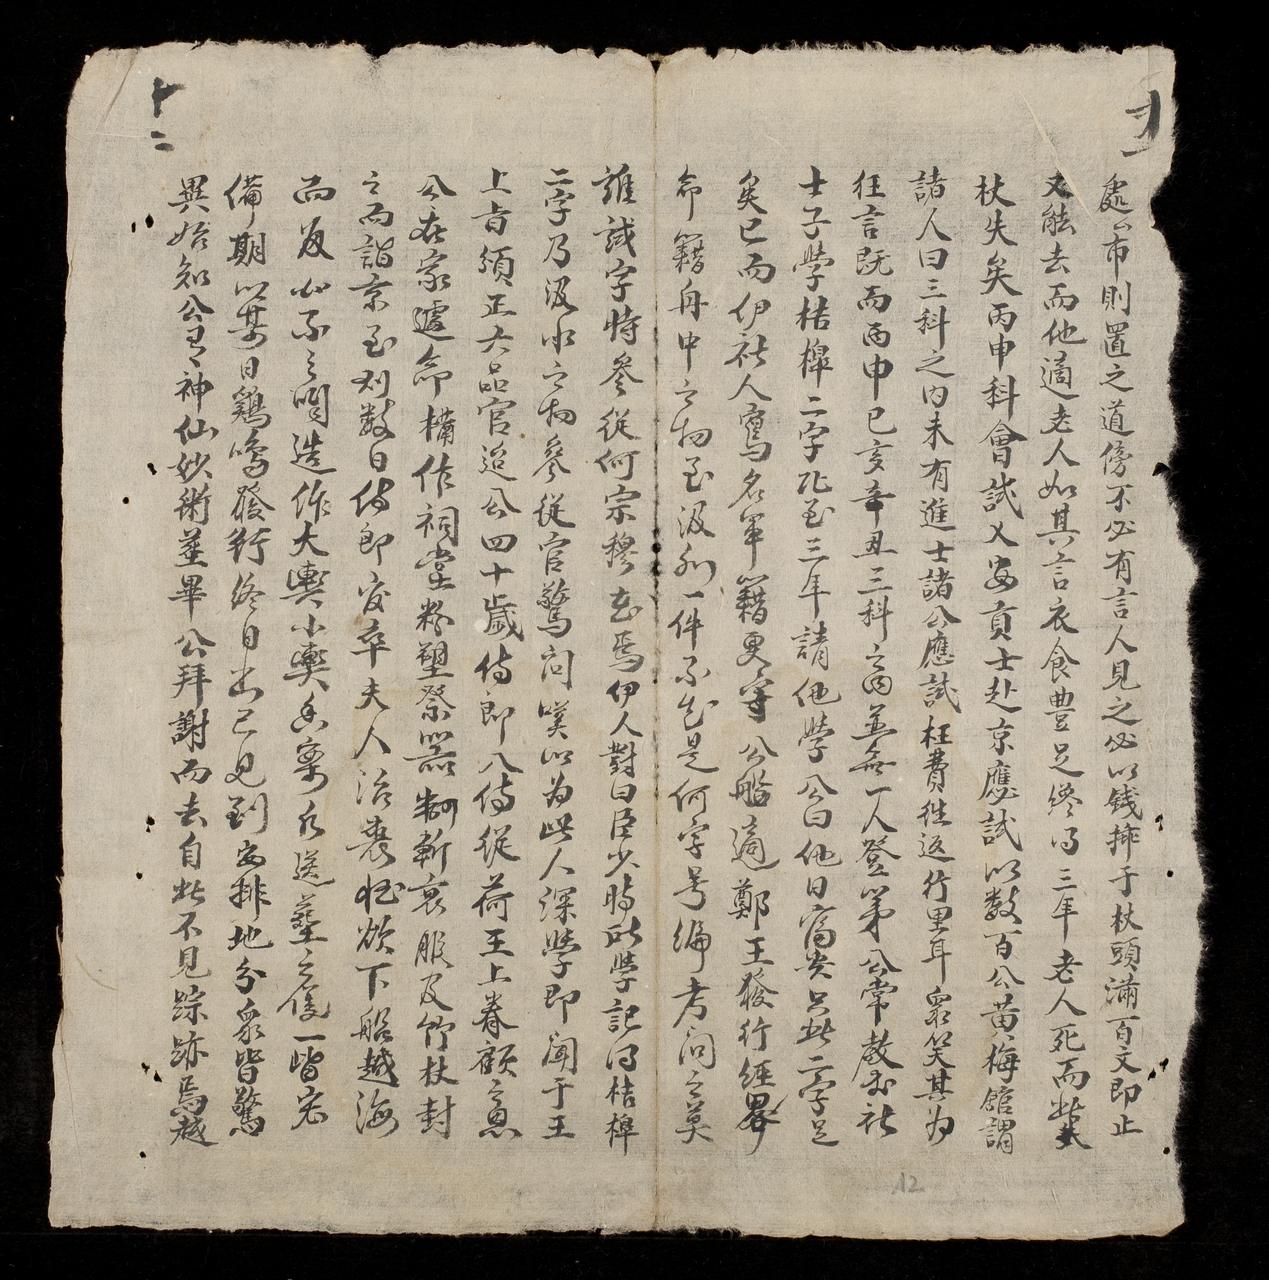 處市則置之道傍不必有言人見之必以錢排于杖頭滿百文即止
又能去而他適老人如其言衣食豊足終得三年老人死而此
杖失矣丙申科會試乂安貢士赴京應試以数百公黄梅舘謂
諸人曰三科之内未有進士諸公應試枉費徃返行里耳衆笑其为
狂言既而丙申己亥辛丑三科之内並無一人登第公常教出社
士子學桔槔二字凡至三年請他學公曰他日富贵只此二字足
矣已而伊社人寫名軍籍更守公船適鄭王發行經畧
命籍舟中之物至汲水一件不知是何字号編考问之莫
誰誠字時參從何宗穆在焉伊人對曰臣少時所學記得桔槔
二字乃汲水之物參從官驚问嘆以为此人深學即闻于王
上旨須正六品官迨公四十歲侍郎入侍從荷王上眷顧之恩
公在家遽命構作祠堂粉塑祭器制斬衰服及竹杖封
之而詣京至刘数日侍郎役卒夫人治喪狂欲下船越海
而返公不之啁造作大輿小輿香案及送葬之儀一皆完
備期以某日鷄鳴發行終日出已見到安排地分衆皆驚
異始知公有神仙妙術葬畢公拜謝而去自此不見踪跡焉越
十二
12